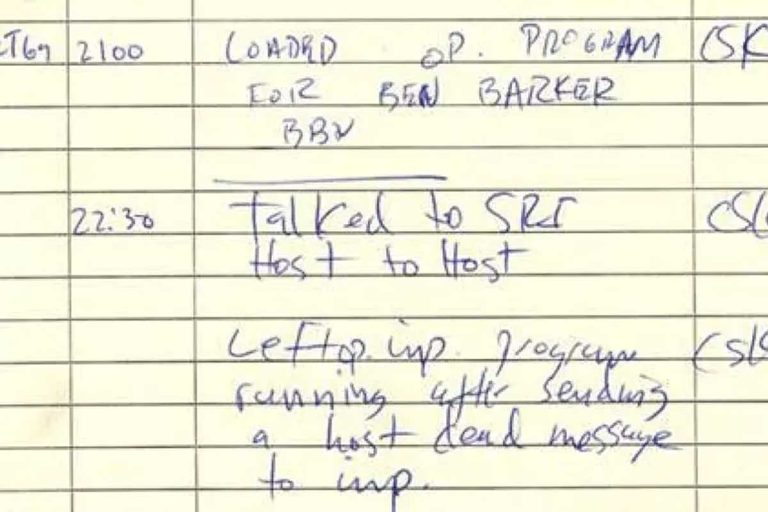 CT69 2100 LOADED OP. PROGRAM CSK
FOR BEN BARKER
BBN
22:30 Talked to SRI CSK
Host to Host
Left op. imp. program CSK
running after sending
a host dead message
to imp.